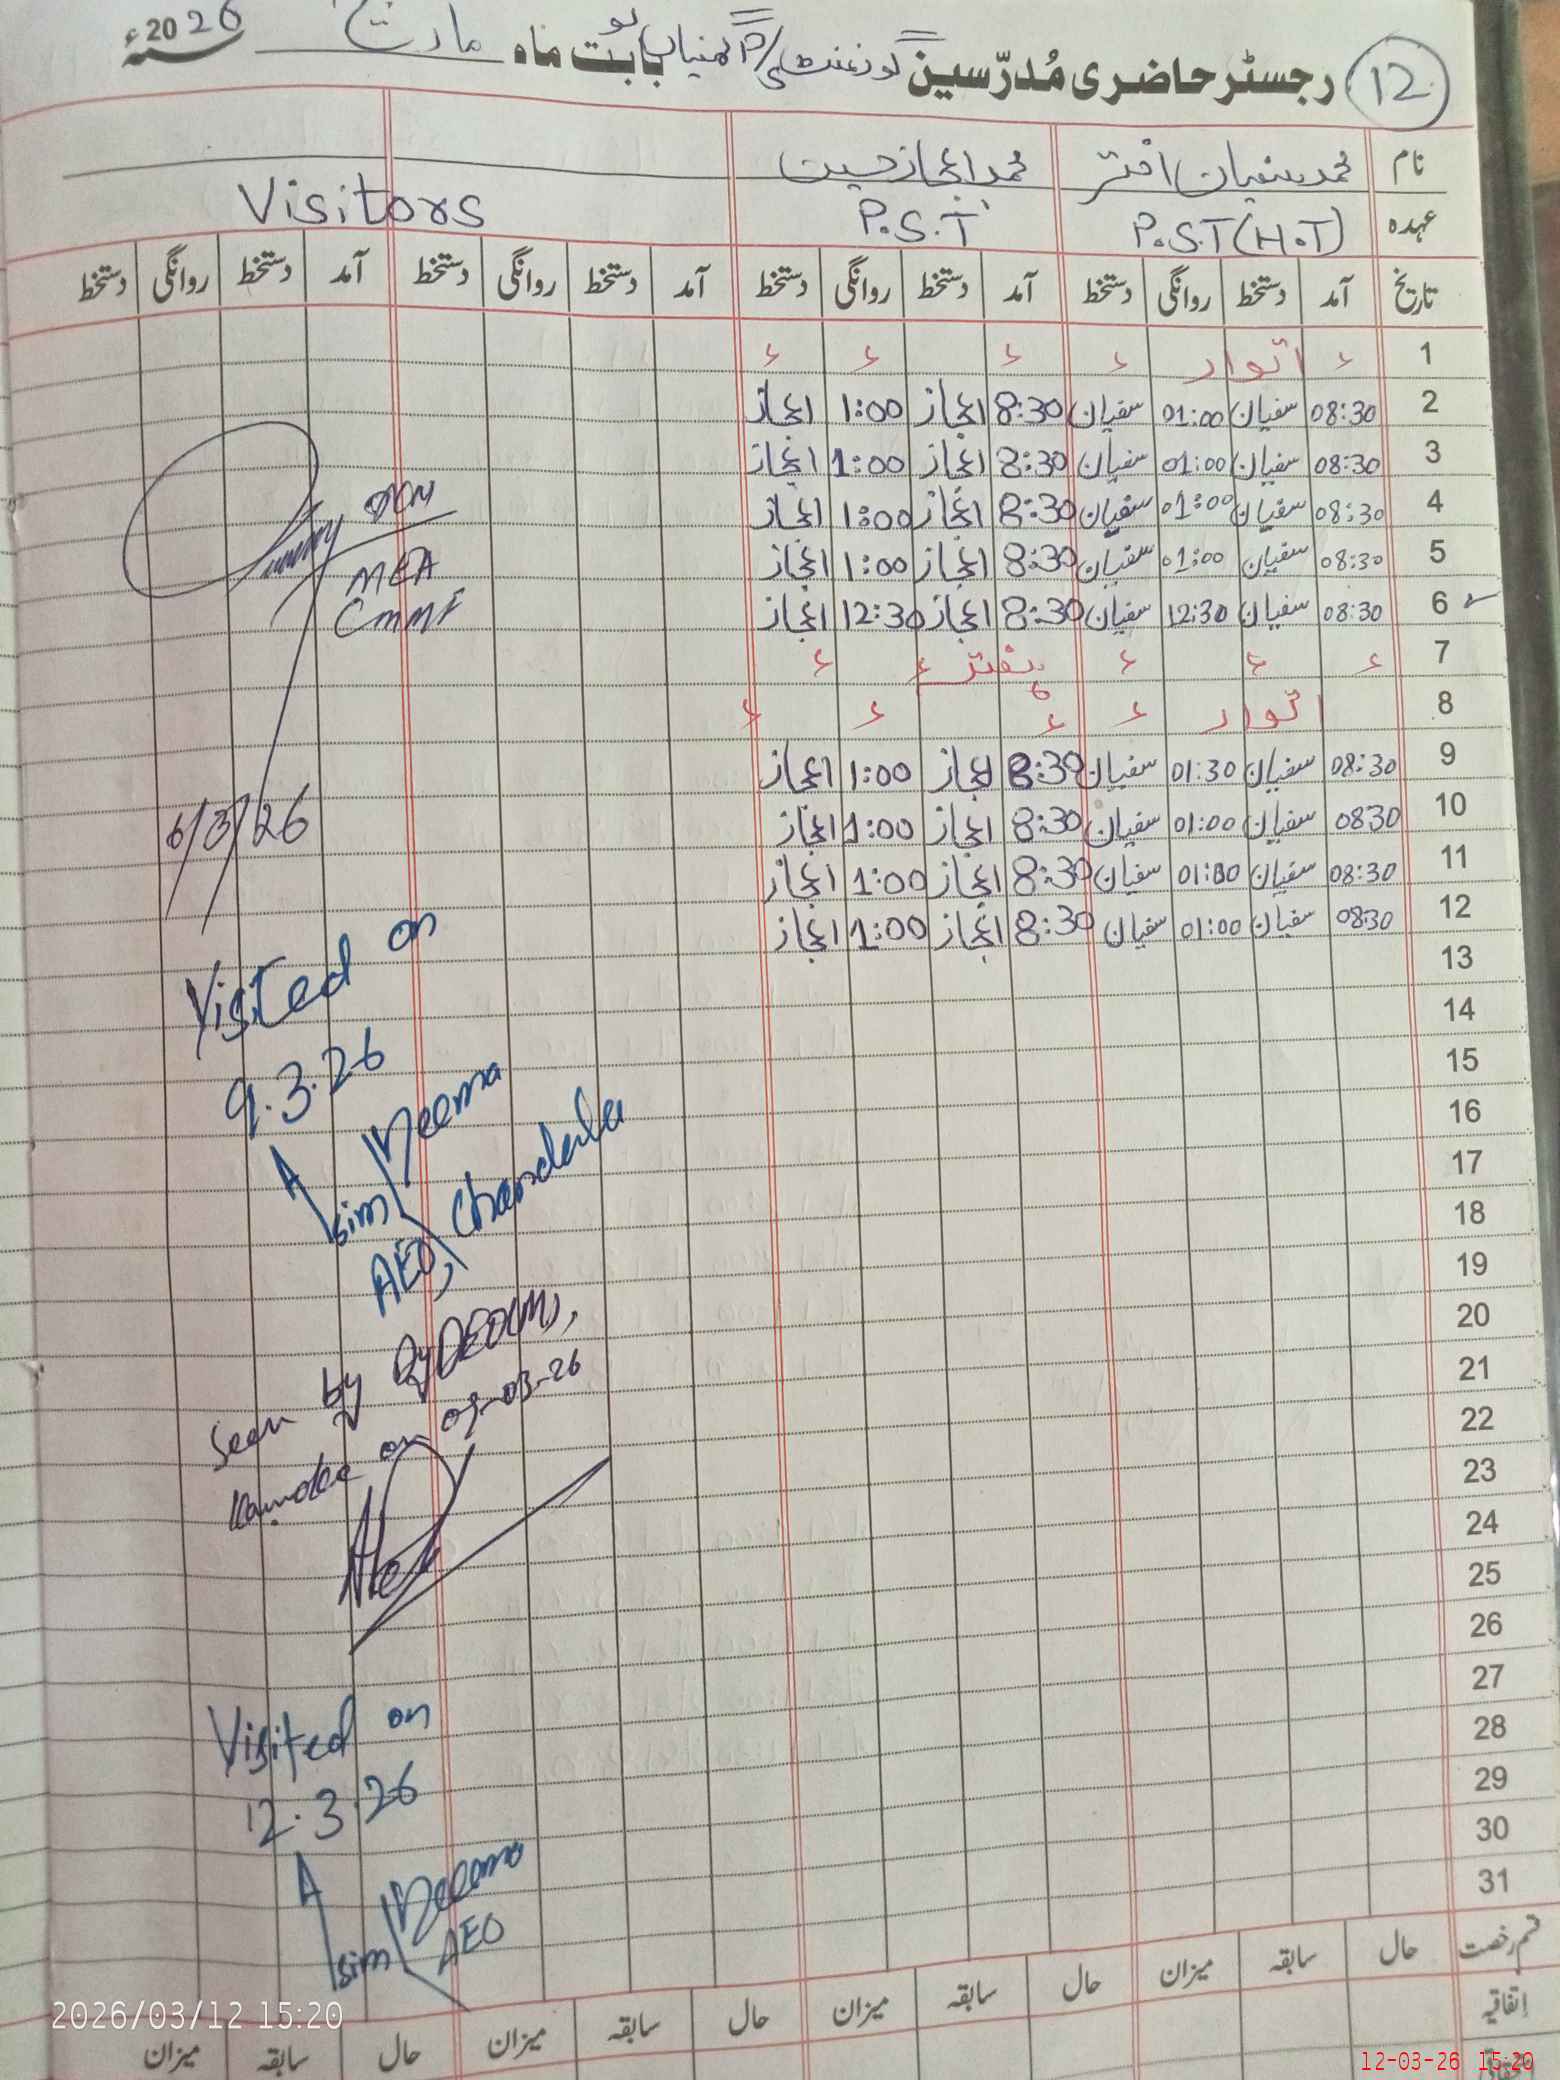 12 رجسٹر حاضری مُدرّسین گورنمنٹ بابُت ماہ مارچ 2026ء
نام محمد سفیان اختر محمد اعجاز حسین
عہدہ P.S.T (H.T) P.S.T Visitors
تاریخ آمد دستخط روانگی دستخط آمد دستخط روانگی دستخط آمد دستخط روانگی دستخط آمد دستخط روانگی دستخط
1 ء اتوار ء ء ء ء
2 08:30 سفیان 01:00 سفیان 8:30 اعجاز 1:00 اعجاز
3 08:30 سفیان 01:00 سفیان 8:30 اعجاز 1:00 اعجاز
4 08:30 سفیان 01:00 سفیان 8:30 اعجاز 1:00 اعجاز
5 08:30 سفیان 01:00 سفیان 8:30 اعجاز 1:00 اعجاز
6 08:30 سفیان 12:30 سفیان 8:30 اعجاز 12:30 اعجاز
7 ء ء ء ہفتہ ء ء
8 اتوار ء ء ء ء
9 08:30 سفیان 01:30 سفیان 8:30 اعجاز 1:00 اعجاز
10 0830 سفیان 01:00 سفیان 8:30 اعجاز 1:00 اعجاز
11 08:30 سفیان 01:00 سفیان 8:30 اعجاز 1:00 اعجاز
12 0830 سفیان 01:00 سفیان 8:30 اعجاز 1:00 اعجاز
13
14
15
16
17
18
19
20
21
22
23
24
25
26
27
28
29
30
31
MEA
6/3/26
Visited on
9.3.26
Asim Neema
AEO, Chandala
Seen by DyDEO(M),
Kamoke on 09-03-26
Visited on
12.3.26
Asim
AEO
قسم رخصت حال سابقہ میزان حال سابقہ میزان حال سابقہ میزان حال سابقہ میزان
اتفاقیہ
2026/03/12 15:20
12-03-26 15:20